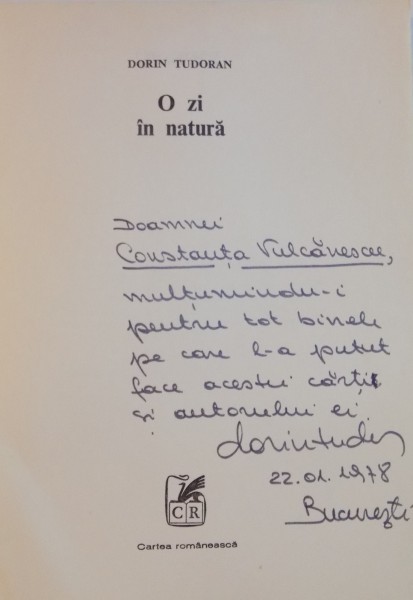 DORIN TUDORAN
O zi
în natură
Doamnei
Constanța Vulcănescu,
mulțumindu-i
pentru tot binele
pe care l-a putut
face acestei cărți
și autorului ei.
dorintudor
22.01.1978
București
CR
Cartea românească